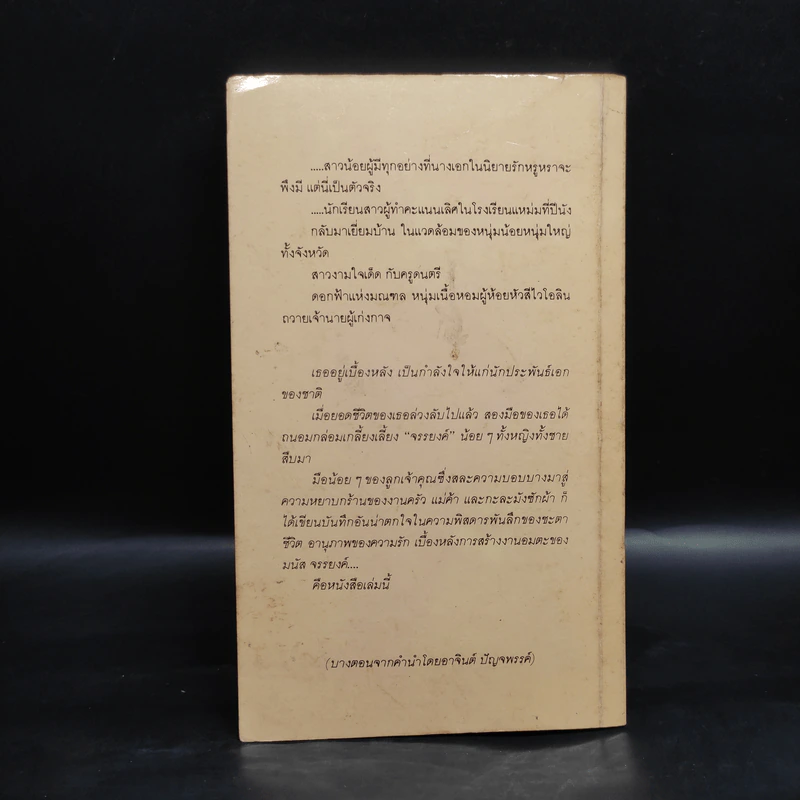 .....สาวน้อยผู้มีทุกอย่างที่นางเอกในนิยายรักหรูหราจะ
พึงมี แต่นี่เป็นตัวจริง
.....นักเรียนสาวผู้ทำคะแนนเลิศในโรงเรียนแหม่มที่ปีนัง
กลับมาเยี่ยมบ้าน ในแวดล้อมของหนุ่มน้อยหนุ่มใหญ่
ทั้งจังหวัด
สาวงามใจเด็ด กับครูดนตรี
ดอกฟ้าแห่งมณฑล หนุ่มเนื้อหอมผู้ห้อยหัวสีไวโอลิน
ถวายเจ้านายผู้เก่งกาจ
เธออยู่เบื้องหลัง เป็นกำลังใจให้แก่นักประพันธ์เอก
ของชาติ
เมื่อยอดชีวิตของเธอล่วงลับไปแล้ว สองมือของเธอได้
ถนอมกล่อมเกลี้ยงเลี้ยง “จรรยงค์” น้อย ๆ ทั้งหญิงทั้งชาย
สืบมา
มือน้อย ๆ ของลูกเจ้าคุณซึ่งสละความบอบบางมาสู่
ความหยาบกร้านของงานครัว แม่ค้า และกะละมังซักผ้า ก็
ได้เขียนบันทึกอันน่าตกใจในความพิสดารพันลึกของชะตา
ชีวิต อานุภาพของความรัก เบื้องหลังการสร้างงานอมตะของ
มนัส จรรยงค์....
คือหนังสือเล่มนี้
(บางตอนจากคำนำโดยอาจินต์ ปัญจพรรค์)